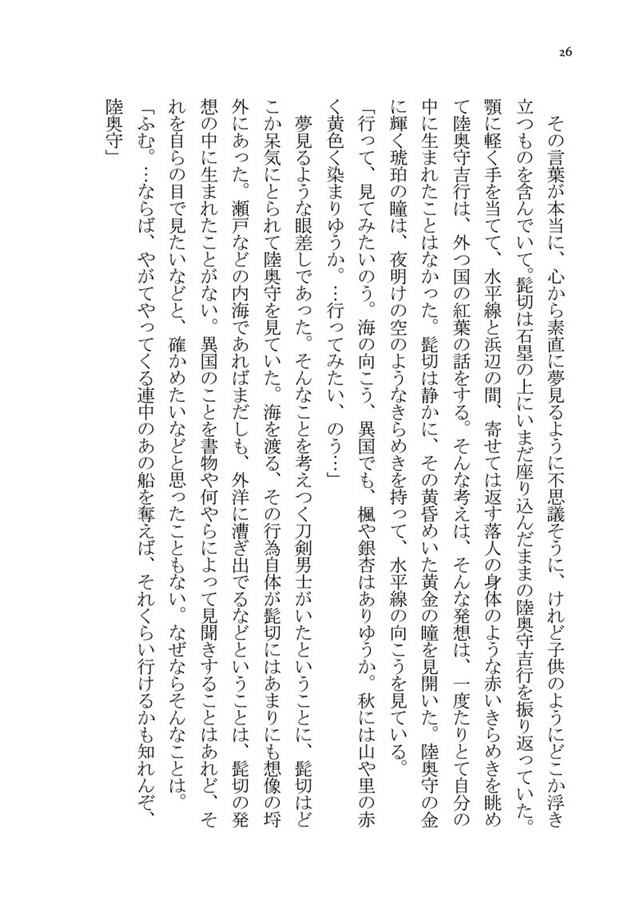 26
その言葉が本当に、心から素直に夢見るように不思議そうに、けれど子供のようにどこか浮き
立つものを含んでいて。髭切は石塁の上にいまだ座り込んだままの陸奥守吉行を振り返っていた。
顎に軽く手を当てて、水平線と浜辺の間、寄せては返す落人の身体のような赤いきらめきを眺め
て陸奥守吉行は、外つ国の紅葉の話をする。そんな考えは、そんな発想は、一度たりとて自分の
中に生まれたことはなかった。髭切は静かに、その黄昏めいた黄金の瞳を見開いた。陸奥守の金
に輝く琥珀の瞳は、夜明けの空のようなきらめきを持って、水平線の向こうを見ている。
「行って、見てみたいのう。海の向こう、異国でも、楓や銀杏はありゆうか。秋には山や里の赤
く黄色く染まりゆうか。…行ってみたい、のう…」
夢見るような眼差しであった。そんなことを考えつく刀剣男士がいたということに、髭切はど
こか呆気にとられて陸奥守を見ていた。海を渡る、その行為自体が髭切にはあまりにも想像の埒
外にあった。瀬戸などの内海であればまだしも、外洋に漕ぎ出でるなどということは、髭切の発
想の中に生まれたことがない。異国のことを書物や何やらによって見聞きすることはあれど、そ
れを自らの目で見たいなどと、確かめたいなどと思ったこともない。なぜならそんなことは。
「ふむ。…ならば、やがてやってくる連中のあの船を奪えば、それくらい行けるかも知れんぞ、
陸奥守」